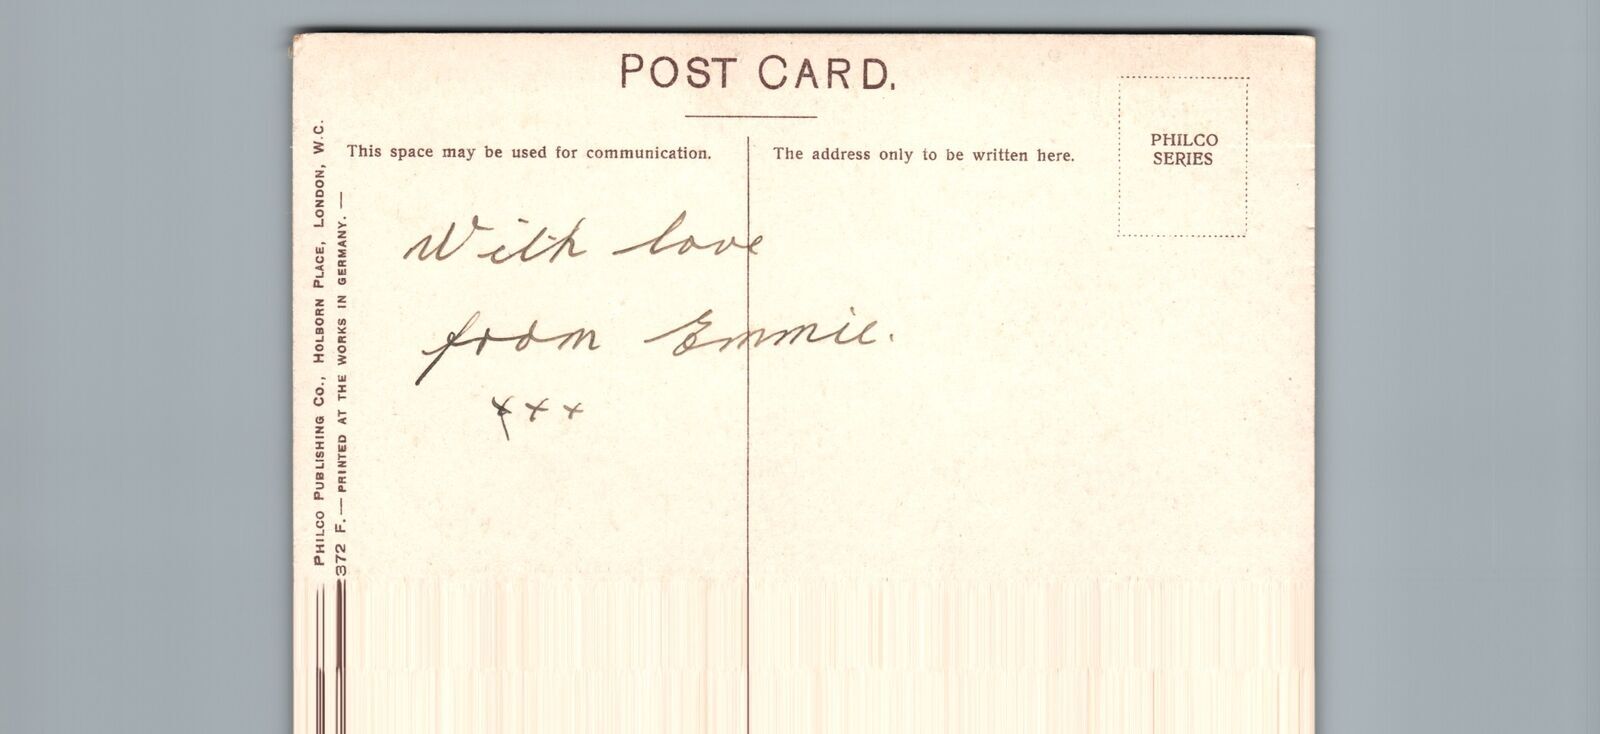 POST CARD.
This space may be used for communication.
The address only to be written here.
PHILCO
SERIES
With love
from Emmie.
xxx
PHILCO PUBLISHING CO., HOLBORN PLACE, LONDON, W.C.
372 F. — PRINTED AT THE WORKS IN GERMANY. —